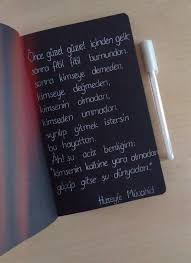 Önce güzel güzel içinden gelir
sonra fitil fitil burnundan.
sonra kimseye demeden,
kimseye değmeden,
kimsenin olmadan,
kimseden ummadan,
sıyrılıp gitmek istersin
bu hayattan.
Ah! şu aciz benliğim:
"kimsenin kalbine yara olmadan
göçüp gitse şu dünyadan."